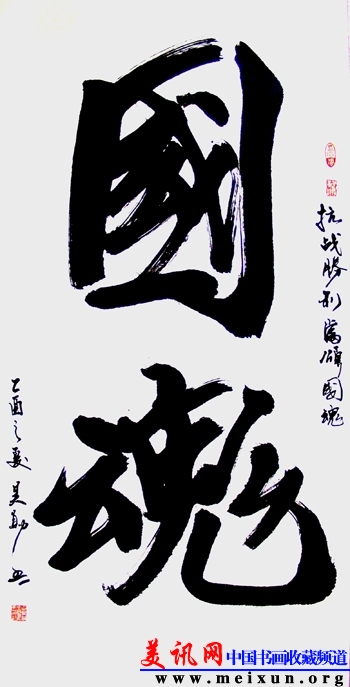 國魂
抗战勝利 頌國魂
乙酉之夏
美讯网 中国书画收藏频道
www.meixun.org